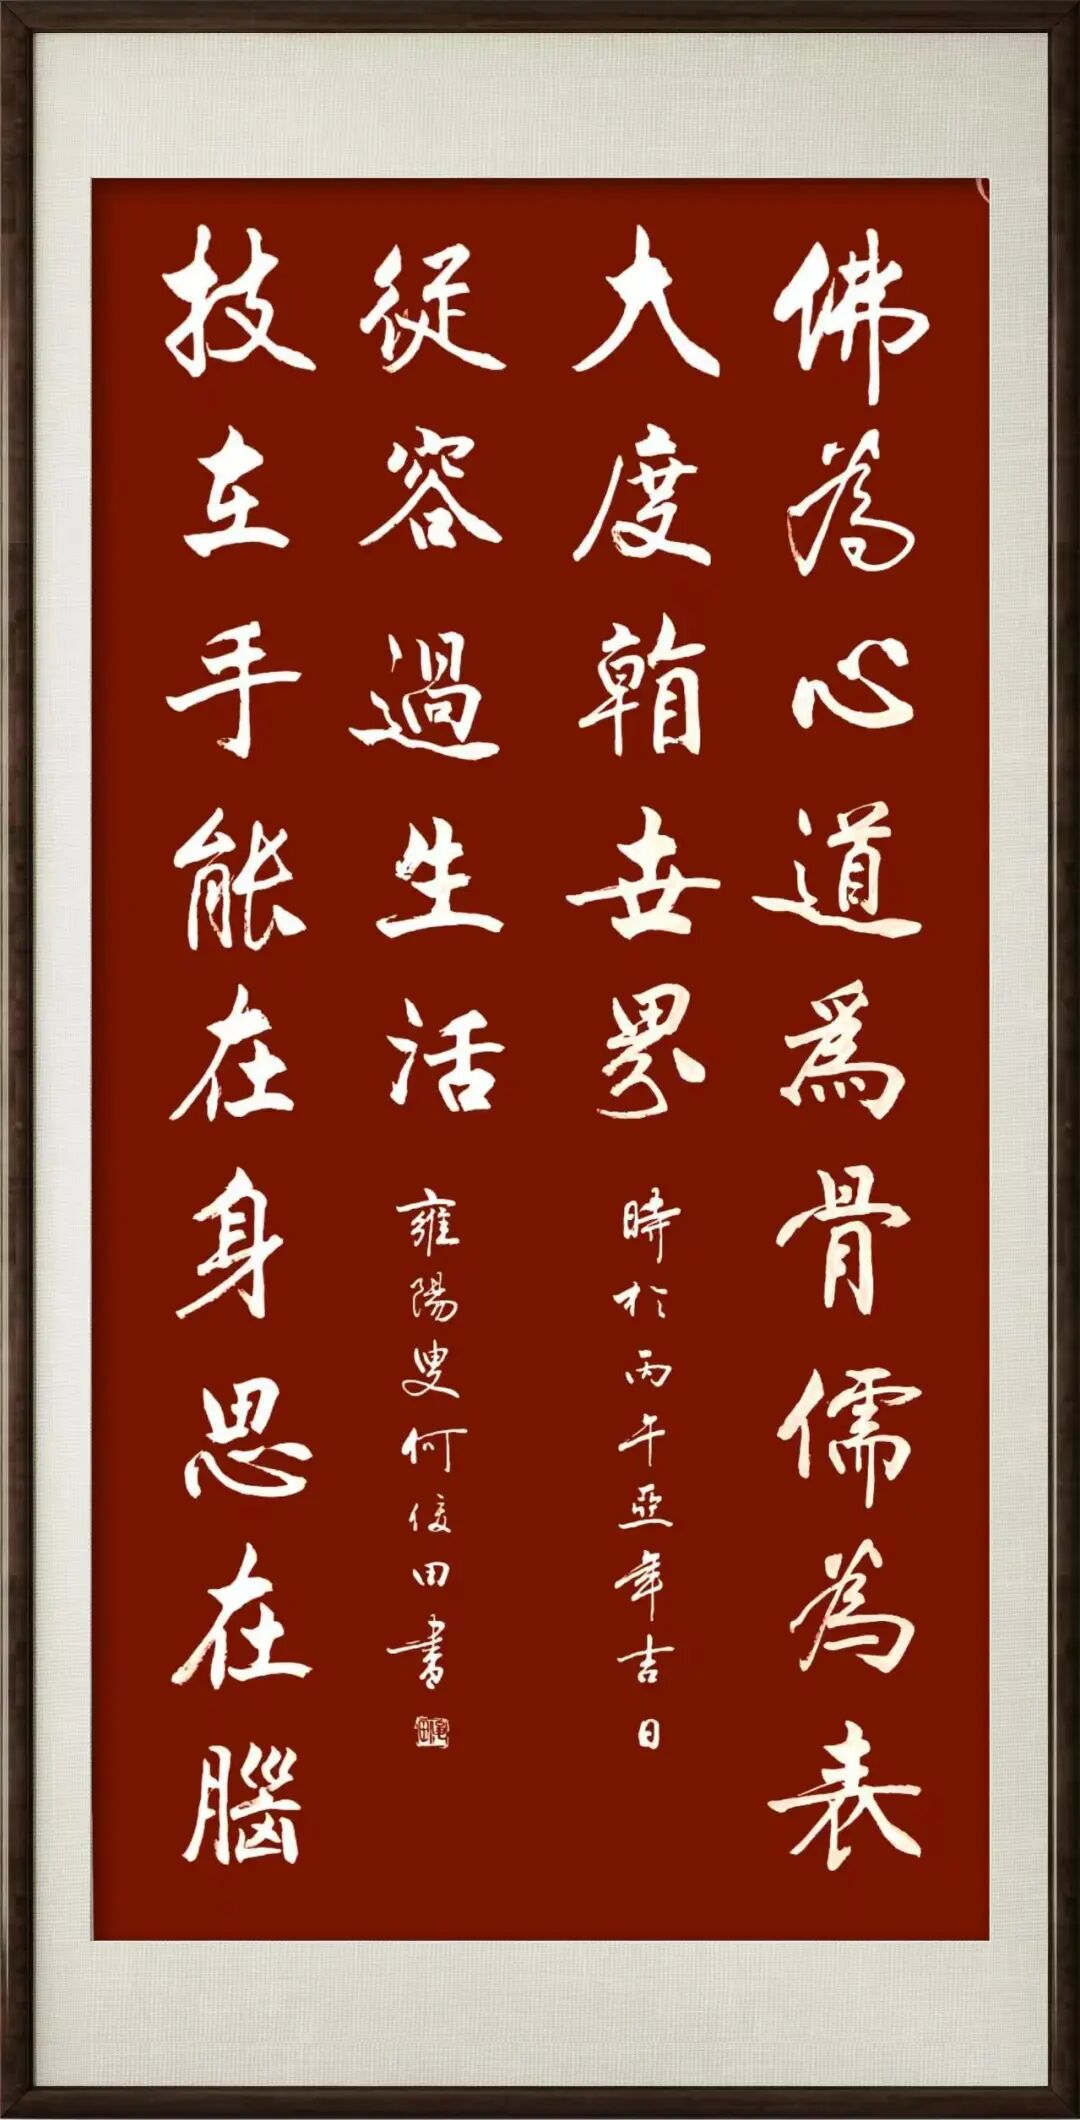 佛為心道為骨儒為表
大度看世界
時於丙午亞年吉日
技在手能在身思在腦
從容過生活
雍陽叟何俊田書